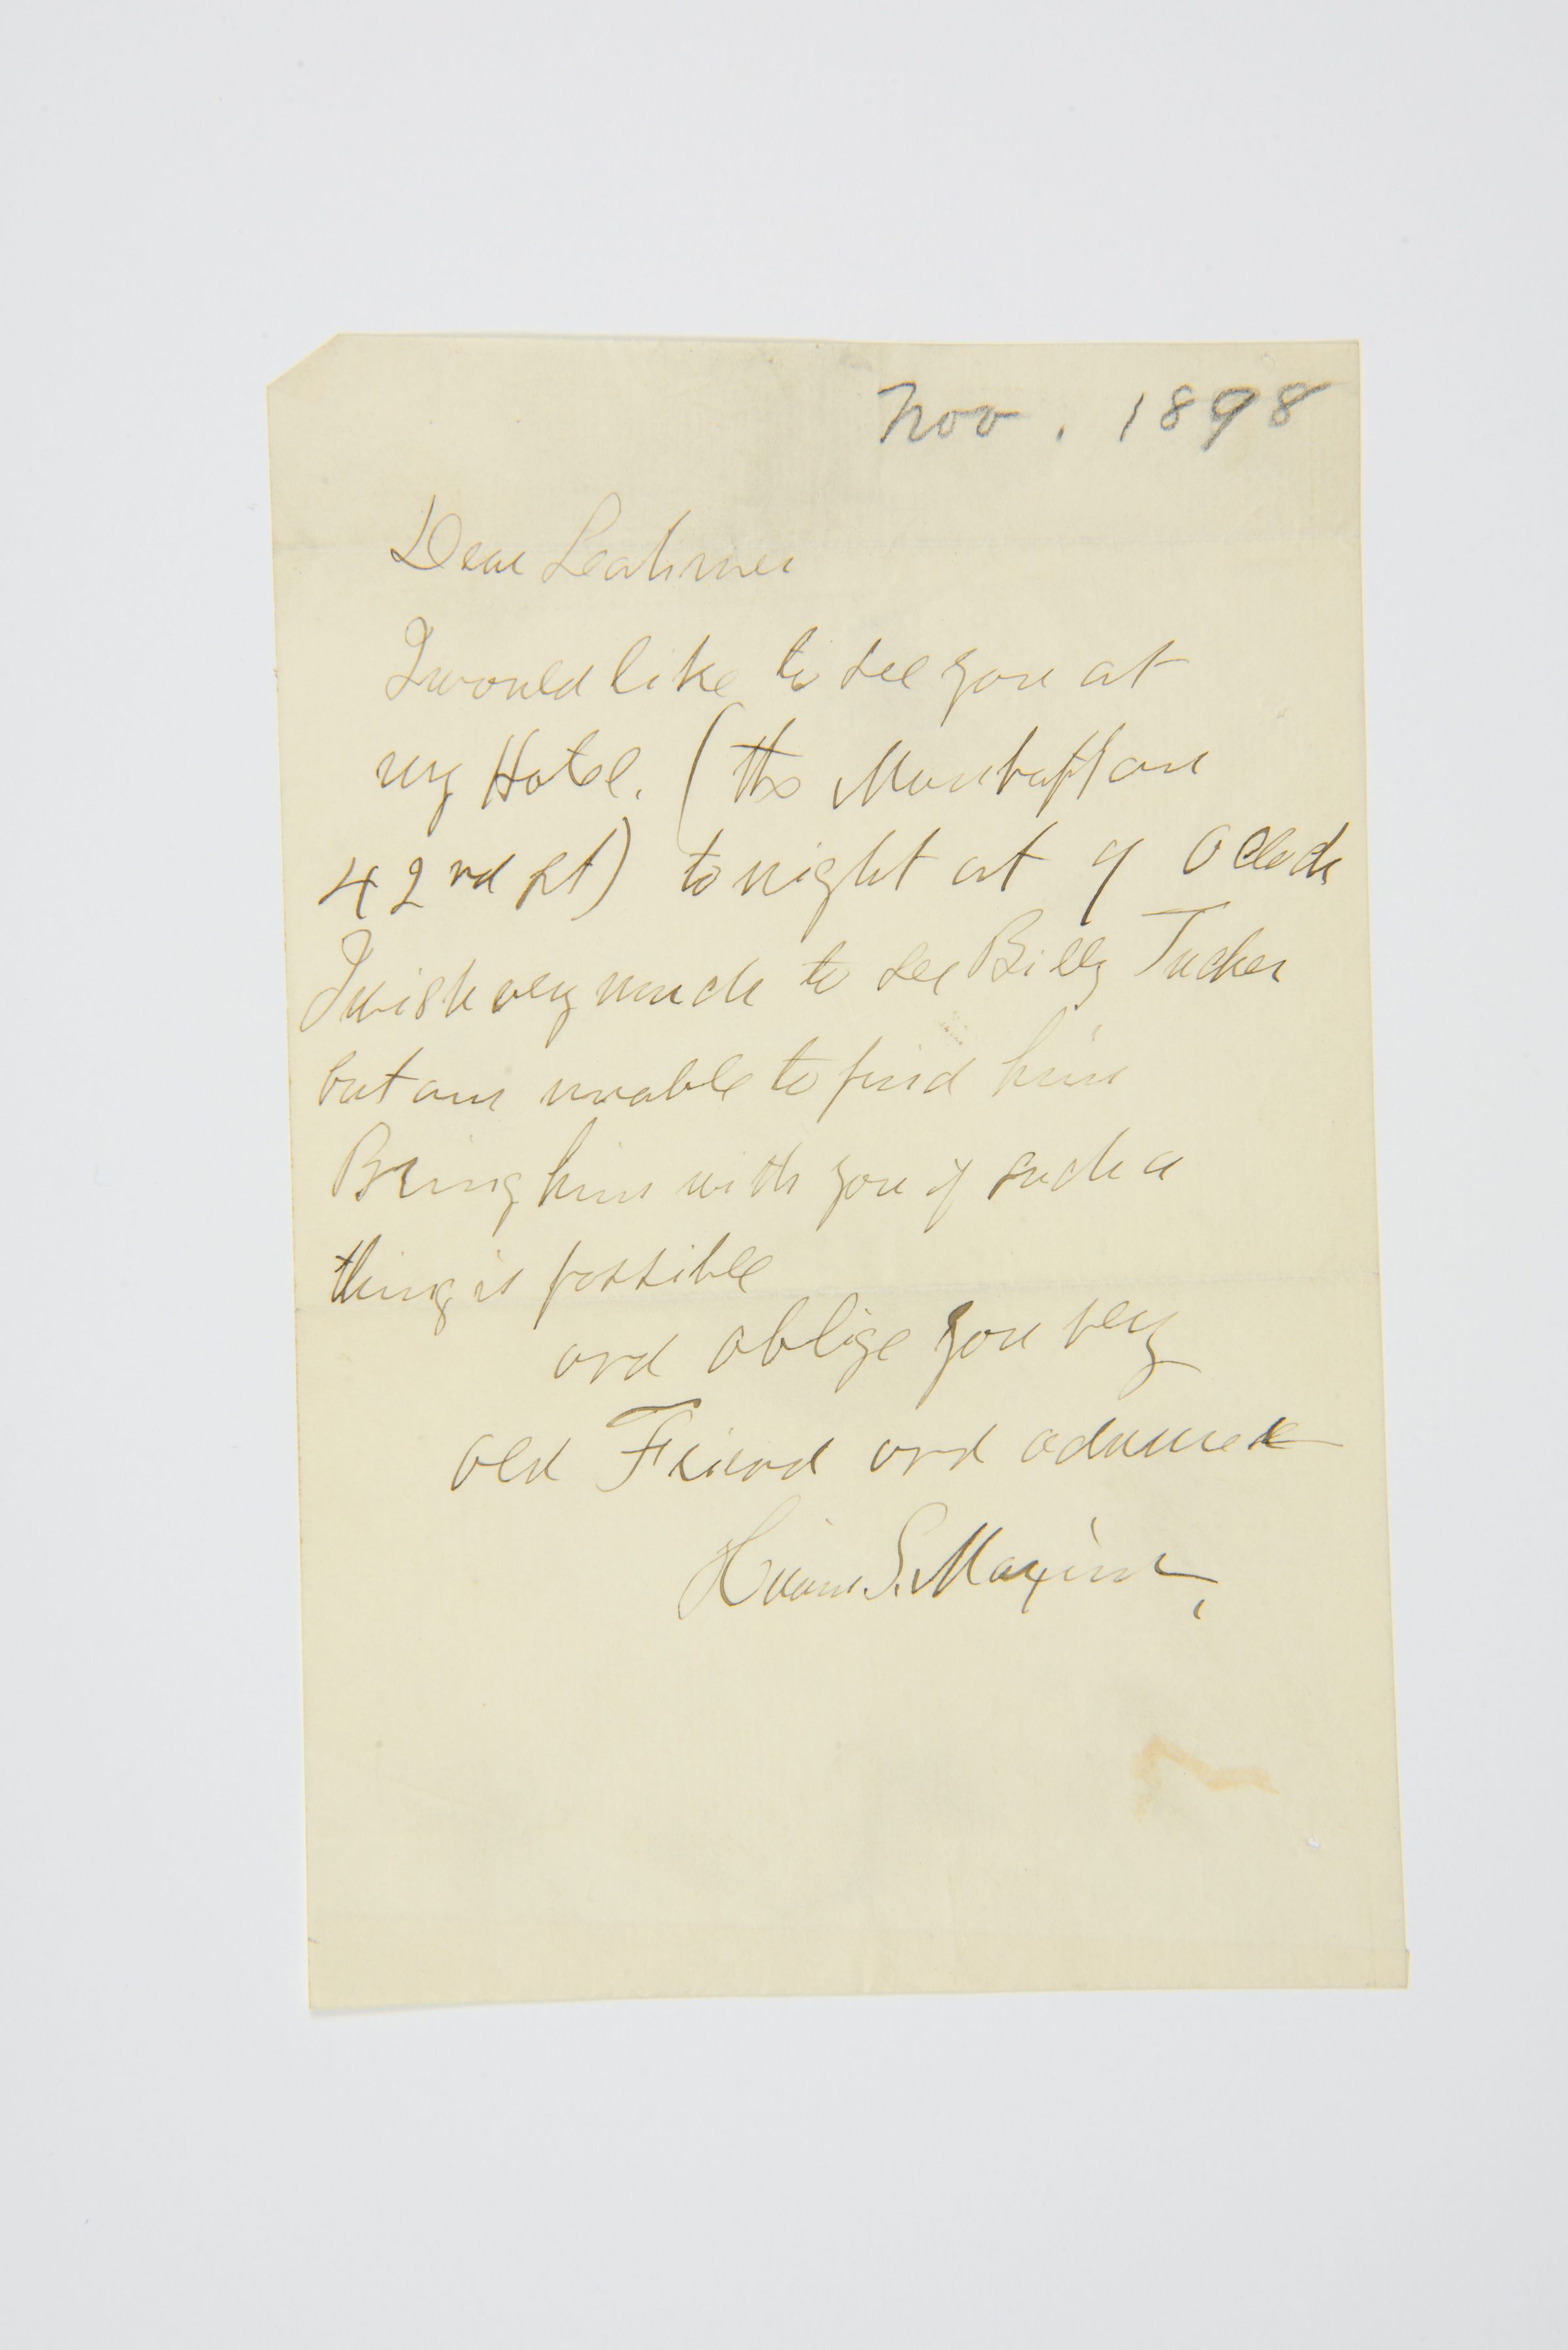 Nov. 1898
Dear Latimer
I would like to see you at
my Hotel. (the Manhattan
42nd St) to night at 9 Oclock
I wish very much to see Billy Tucker
but am unable to find him
Bring him with you if such a
thing is possible
and oblige you very
old Friend and admirer
Hiram S. Maxim